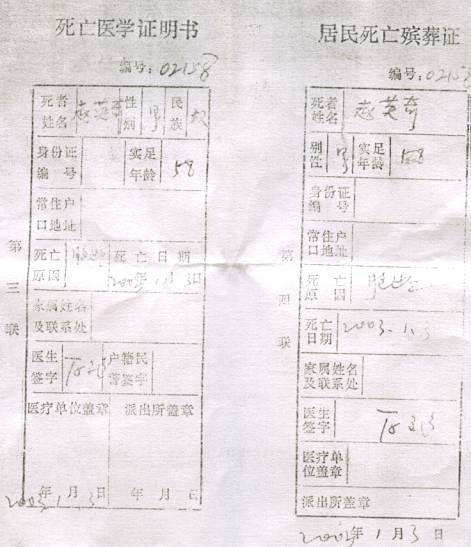 死亡医学证明书
编号：02158
死者姓名 赵英奇 性别 男 民族 汉
身份证编号 实足年龄 58
常住户口地址
死亡原因 死亡日期 2003年1月3日
家属姓名及联系处
医生签字 户籍民警签字
医疗单位盖章 派出所盖章
2003年1月3日 年 月 日
第三联
居民死亡殡葬证
编号：02158
死者姓名 赵英奇
别性 男 实足年龄 58
身份证编号
常住户口地址
死亡原因
死亡日期 2003.1.3
家属姓名及联系处
医生签字
医疗单位盖章
派出所盖章
年1月3日
第四联